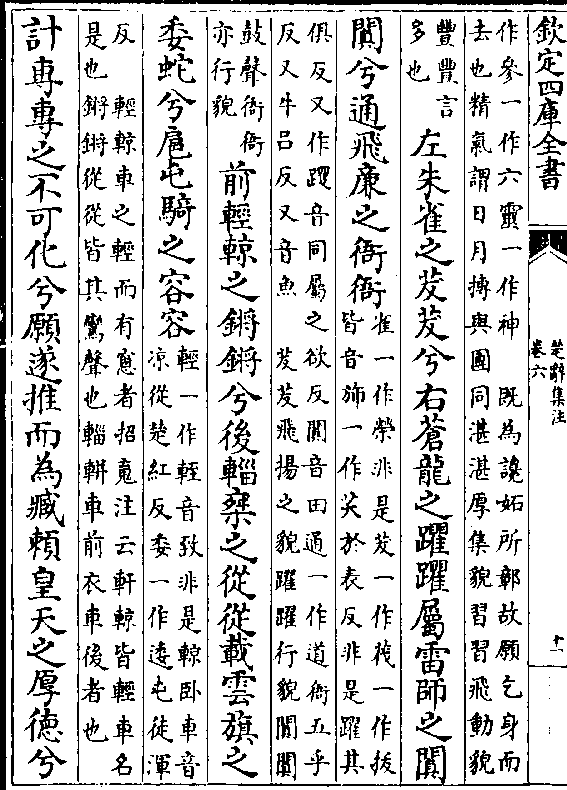 欽定四庫全書
楚辭集注
卷六
十一
作參一作六靈一作神　既為讒妬所鄣故願乞身而
去也精氣謂日月摶與團同湛湛厚集貌習習飛動貌
豐豐言
多也
左朱雀之茇茇兮右蒼龍之躍躍屬雷師之闐
闐兮通飛廉之衙衙
雀一作榮非是茇一作筏一作拔
皆音斾一作芺於表反非是躍其
俱反又作躣音同屬之欲反闐音田通一作道衙五乎
反又牛呂反又音魚　茇茇飛揚之貌躍躍行貌闐闐
鼓聲衙衙
亦行貌
前輕輬之鏘鏘兮後輜椉之從從載雲旗之
委蛇兮扈屯騎之容容
輕一作輊音致非是輬卧車音
凉從楚紅反委一作逶屯徒渾
反　輕輬車之輕而有窻者招䰟注云軒輬皆輕車名
是也鏘鏘從從皆其鸞聲也輜軿車前衣車後者也
計専専之不可化兮願遂推而為臧頼皇天之厚德兮